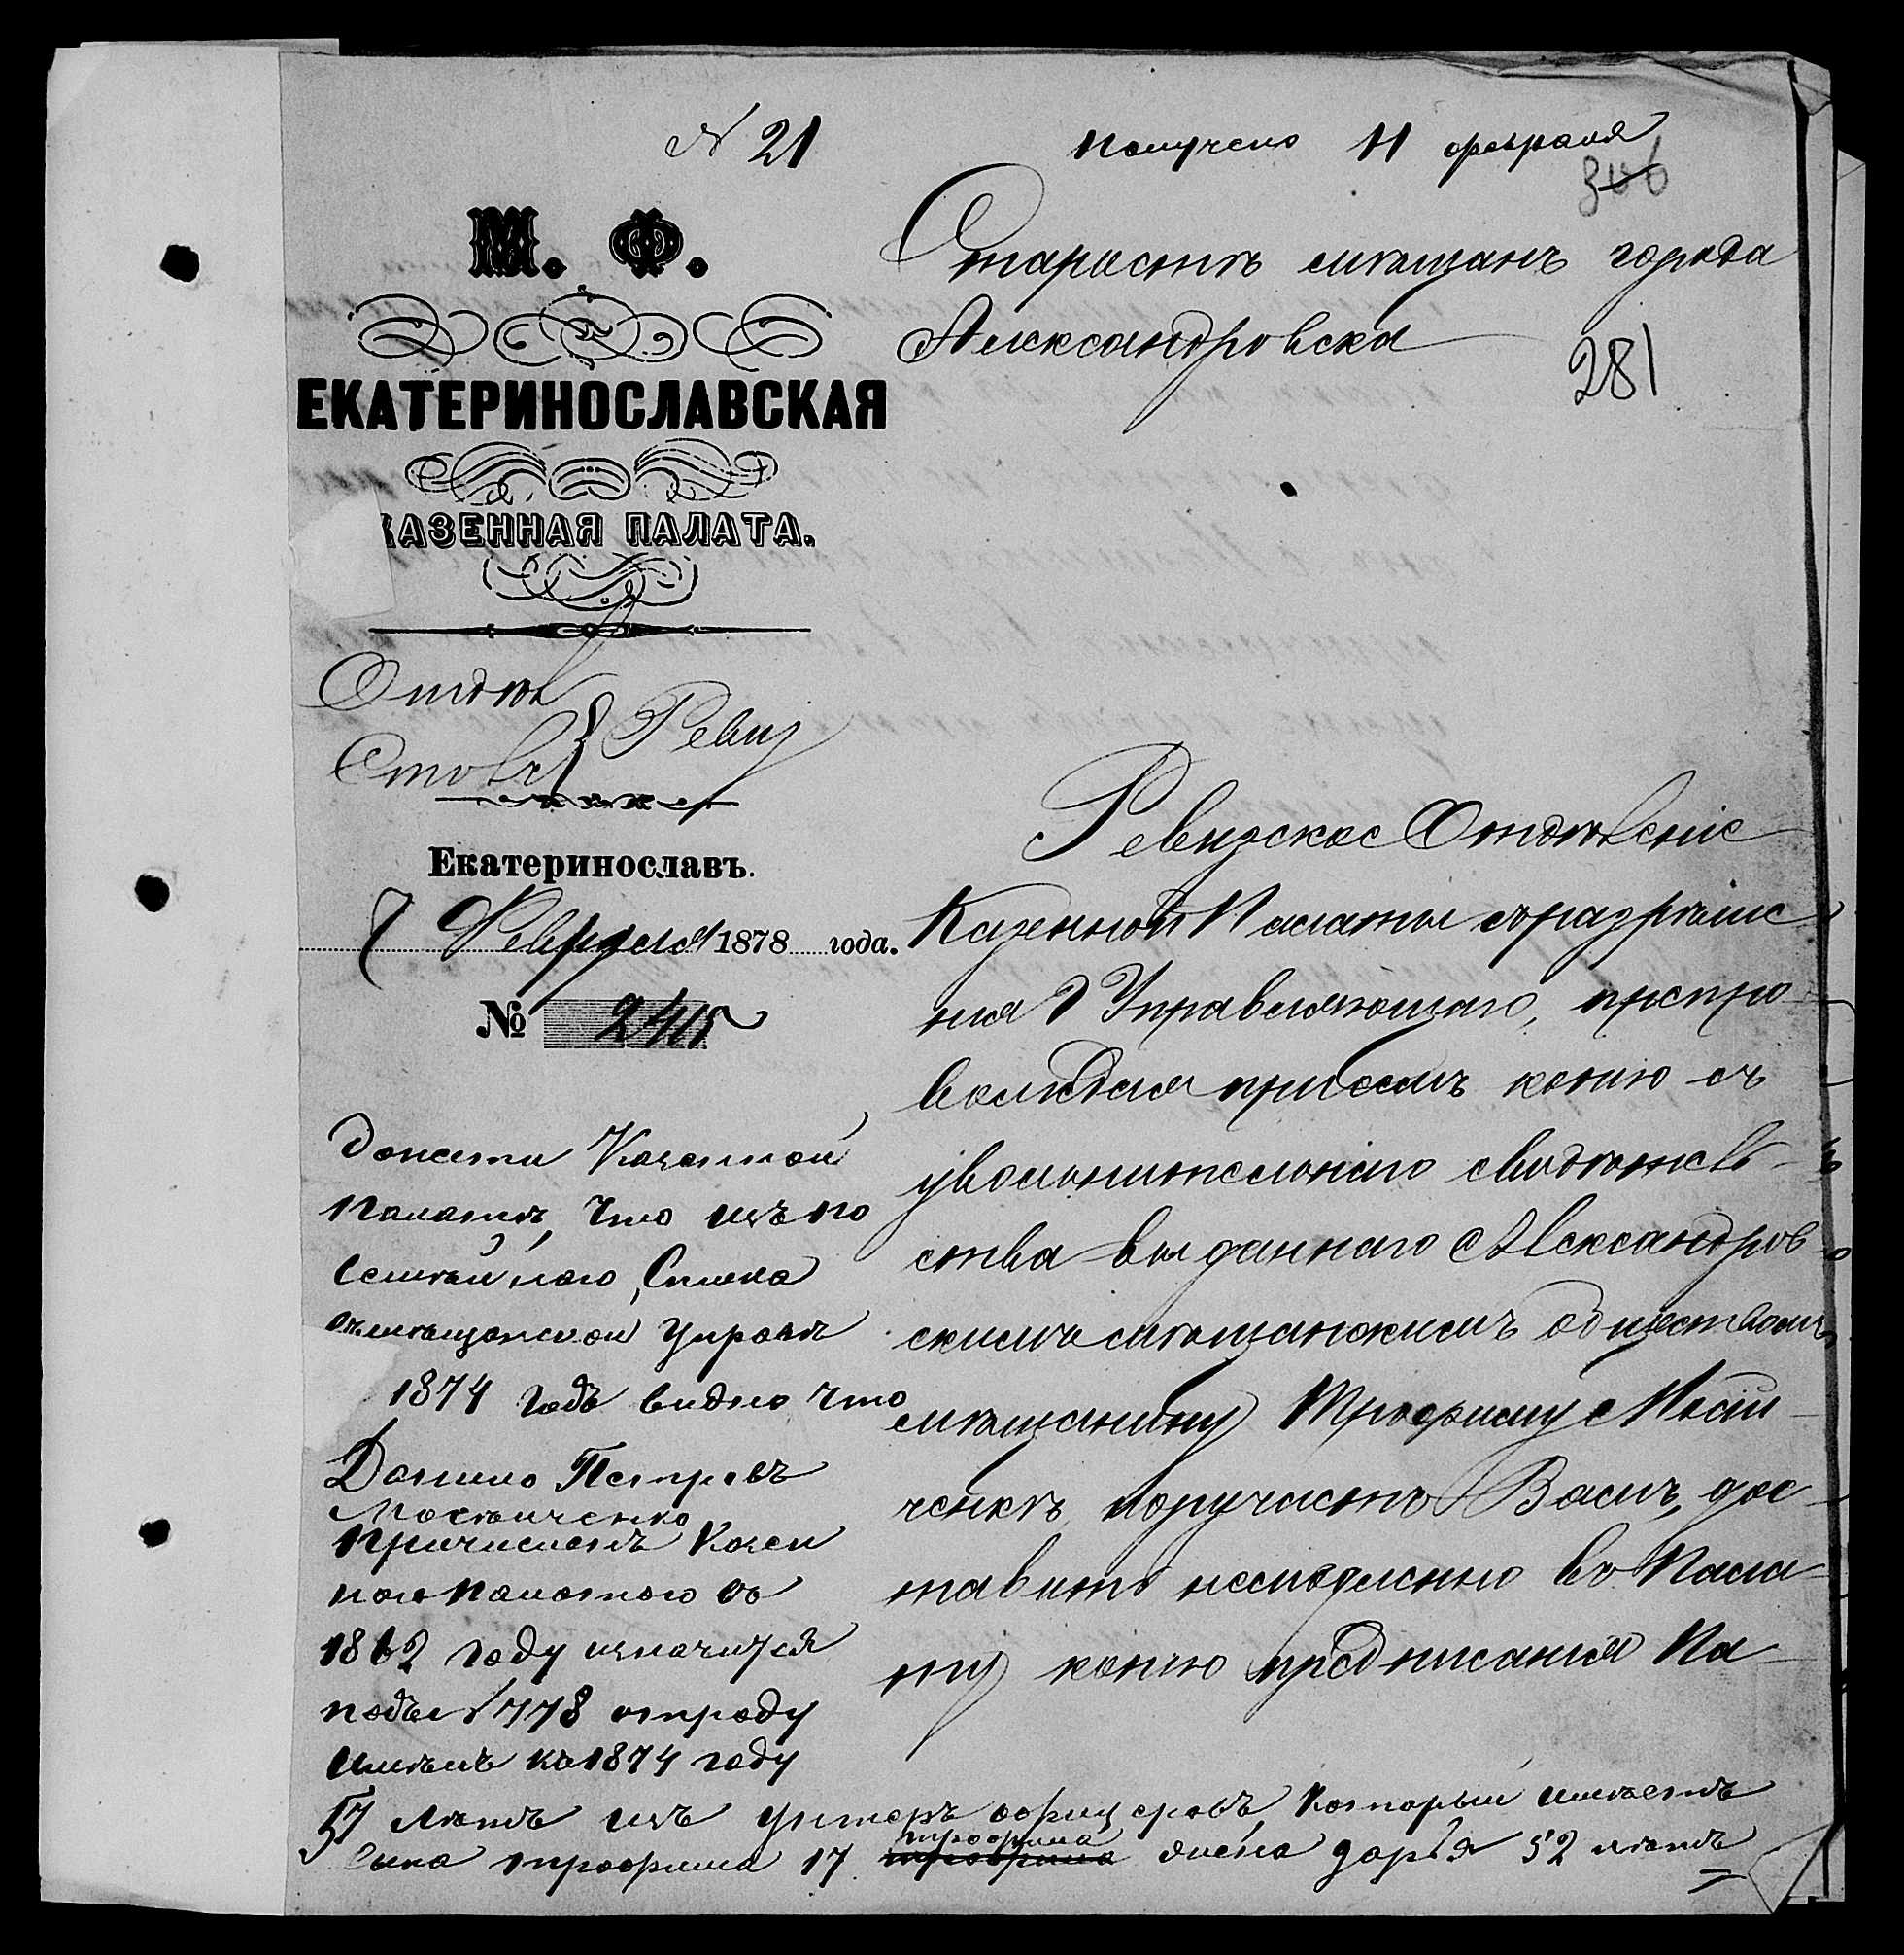 № 21
Получено 11 февраля
306
М. Ф.
ЕКАТЕРИНОСЛАВСКАЯ
КАЗЕННАЯ ПАЛАТА.
Отдѣл
Столъ
Ревиз
Екатеринославъ.
7 Февраля 1878 года.
№ 2415
Старостѣ мѣщанъ города
Александровска
281
Ревизское Отдѣленіе
Казенной Палаты съ разрѣше
нія Управляющаго, препро
вождая при семъ копію съ
увольнительнаго свидѣтель
ства выданнаго Александров
скимъ мѣщанскимъ обществомъ
мѣщанину Трофиму Мосій
ченкѣ поручаетъ Вамъ, дос
тавить немедленно въ Пала
ту копію предписанія Па
Донести Казенной
Палатѣ, что изъ по
семейнаго Списка
мѣщанской Управѣ
1874 годъ видно что
Данило Петровъ
Мосейченко
Причисленъ Казен
ною Палатою въ
1862 году и значится
подъ № 778 отроду
имѣлъ къ 1874 году
57 лѣтъ изъ унтеръ офицеровъ, который имѣетъ
трофима
сына трофима 17 трофима жена дарья 52 лѣтъ